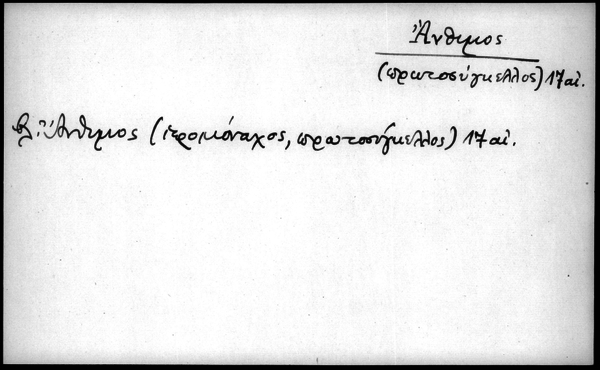 Ἄνθιμος
(πρωτοσύγκελλος) 17 αἰ.
βλ. Ἄνθιμος (ἱερομόναχος, πρωτοσύγκελλος) 17 αἰ.